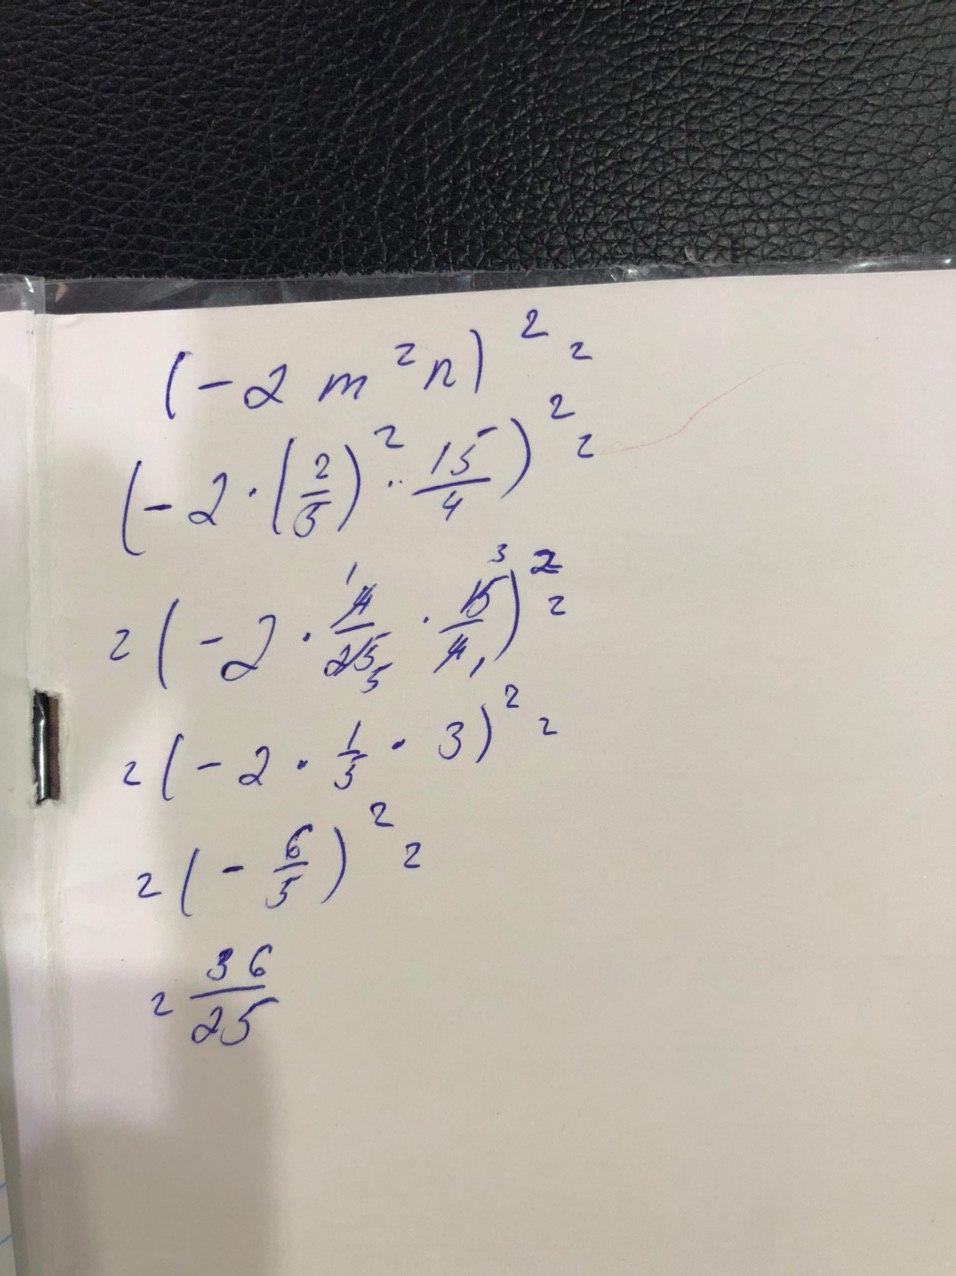 (-2 m²n)² =
(-2 · (2/5)² · 15/4)² =
= (-2 · 4/25 · 15/4)² =
= (-2 · 1/5 · 3)² =
= (-6/5)² =
= 36/25